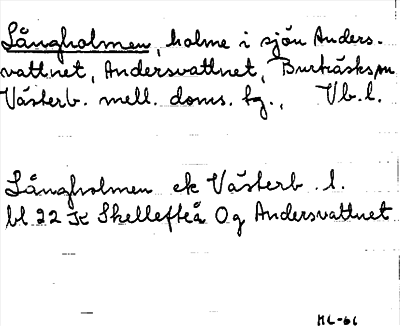 Långholmen, holme i sjön Anders-
vattnet, Andersvattnet, Burträsks sn
Västerb. mell. doms. tg., Vb. l.
Långholmen ek Västerb. l.
bl 22 K Skellefteå Og Andersvattnet
HL-61